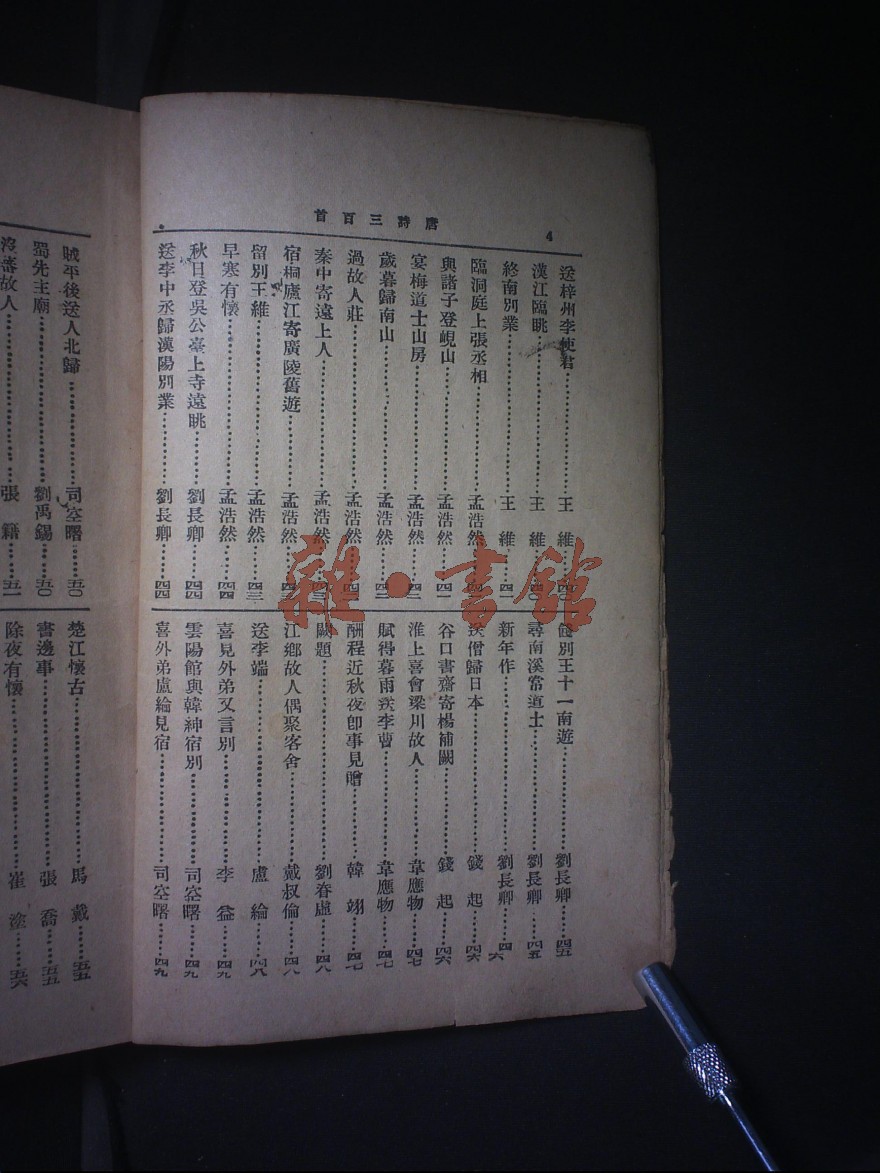 4
唐詩三百首
送梓州李使君……王維……四〇
漢江臨眺……王維……四〇
終南別業……王維……四一
臨洞庭上張丞相……孟浩然……四一
與諸子登峴山……孟浩然……四一
宴梅道士山房……孟浩然……四二
歲暮歸南山……孟浩然……四二
過故人莊……孟浩然……四二
秦中寄遠上人……孟浩然……四三
宿桐廬江寄廣陵舊遊……孟浩然……四三
留別王維……孟浩然……四三
早寒有懷……孟浩然……四四
秋日登吳公臺上寺遠眺……劉長卿……四四
送李中丞歸漢陽別業……劉長卿……四四
餞別王十一南遊……劉長卿……四五
尋南溪常道士……劉長卿……四五
新年作……劉長卿……四六
送僧歸日本……錢起……四六
谷口書齋寄楊補闕……錢起……四六
淮上喜會梁川故人……韋應物……四七
賦得暮雨送李曹……韋應物……四七
酬程近秋夜卽事見贈……韓翊……四七
闕題……劉眘虛……四八
江鄉故人偶聚客舍……戴叔倫……四八
送李端……盧綸……四八
喜見外弟又言別……李益……四九
雲陽館與韓紳宿別……司空曙……四九
喜外弟盧綸見宿……司空曙……四九
賊平後送人北歸……司空曙……五〇
蜀先主廟……劉禹錫……五〇
沒蕃故人……張籍……五一
楚江懷古……馬戴……五五
書邊事……張喬……五五
除夜有懷……崔塗……五六
雜·書館